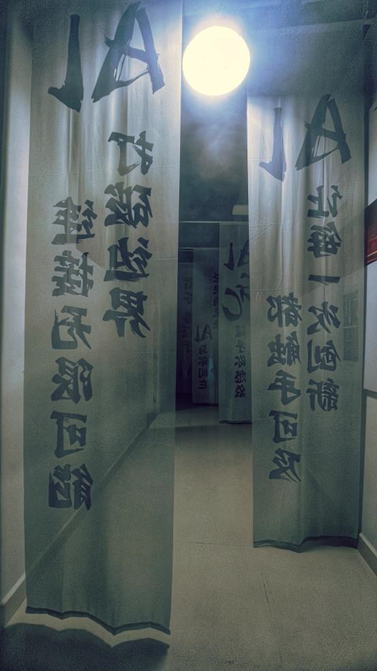 AI
打破边界
连接无限可能
AI
让每一次创新
都触手可及